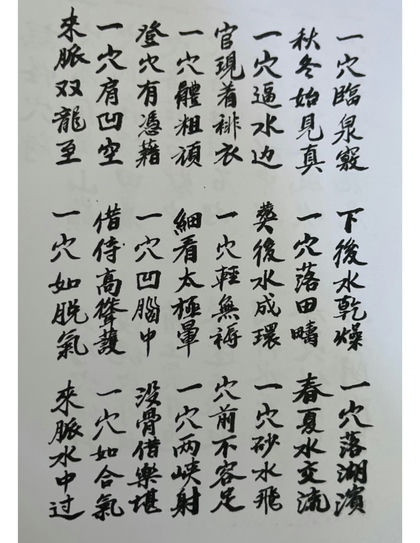 一穴臨泉竅 下後水乾燥 一穴落湖濱
秋冬始見真 一穴落田疇 春夏水交流
一穴逼水边 葬後水成環 一穴砂水飛
官現着裶衣 一穴輕無褥 穴前不容足
一穴體粗頑 細看太極暈 一穴两峽射
登穴有憑藉 一穴凹腦中 没骨借樂堪
一穴肩凹空 借侍高聳護 一穴如合氣
來脈双龍至 一穴如脱氣 來脈水中过